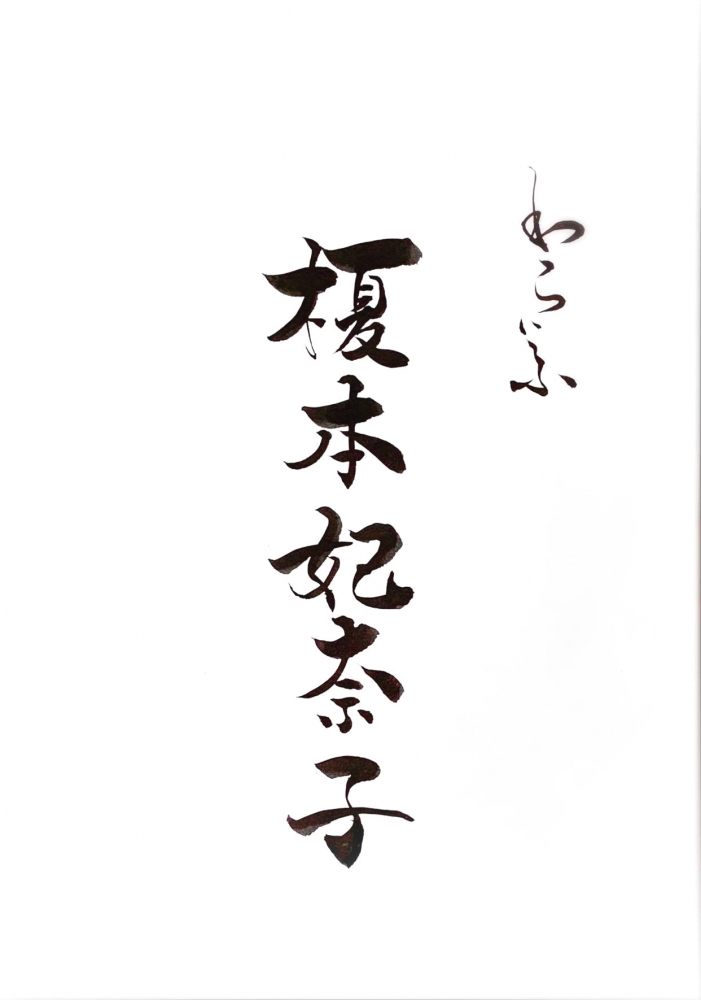 わらいふ
榎本妃奈子